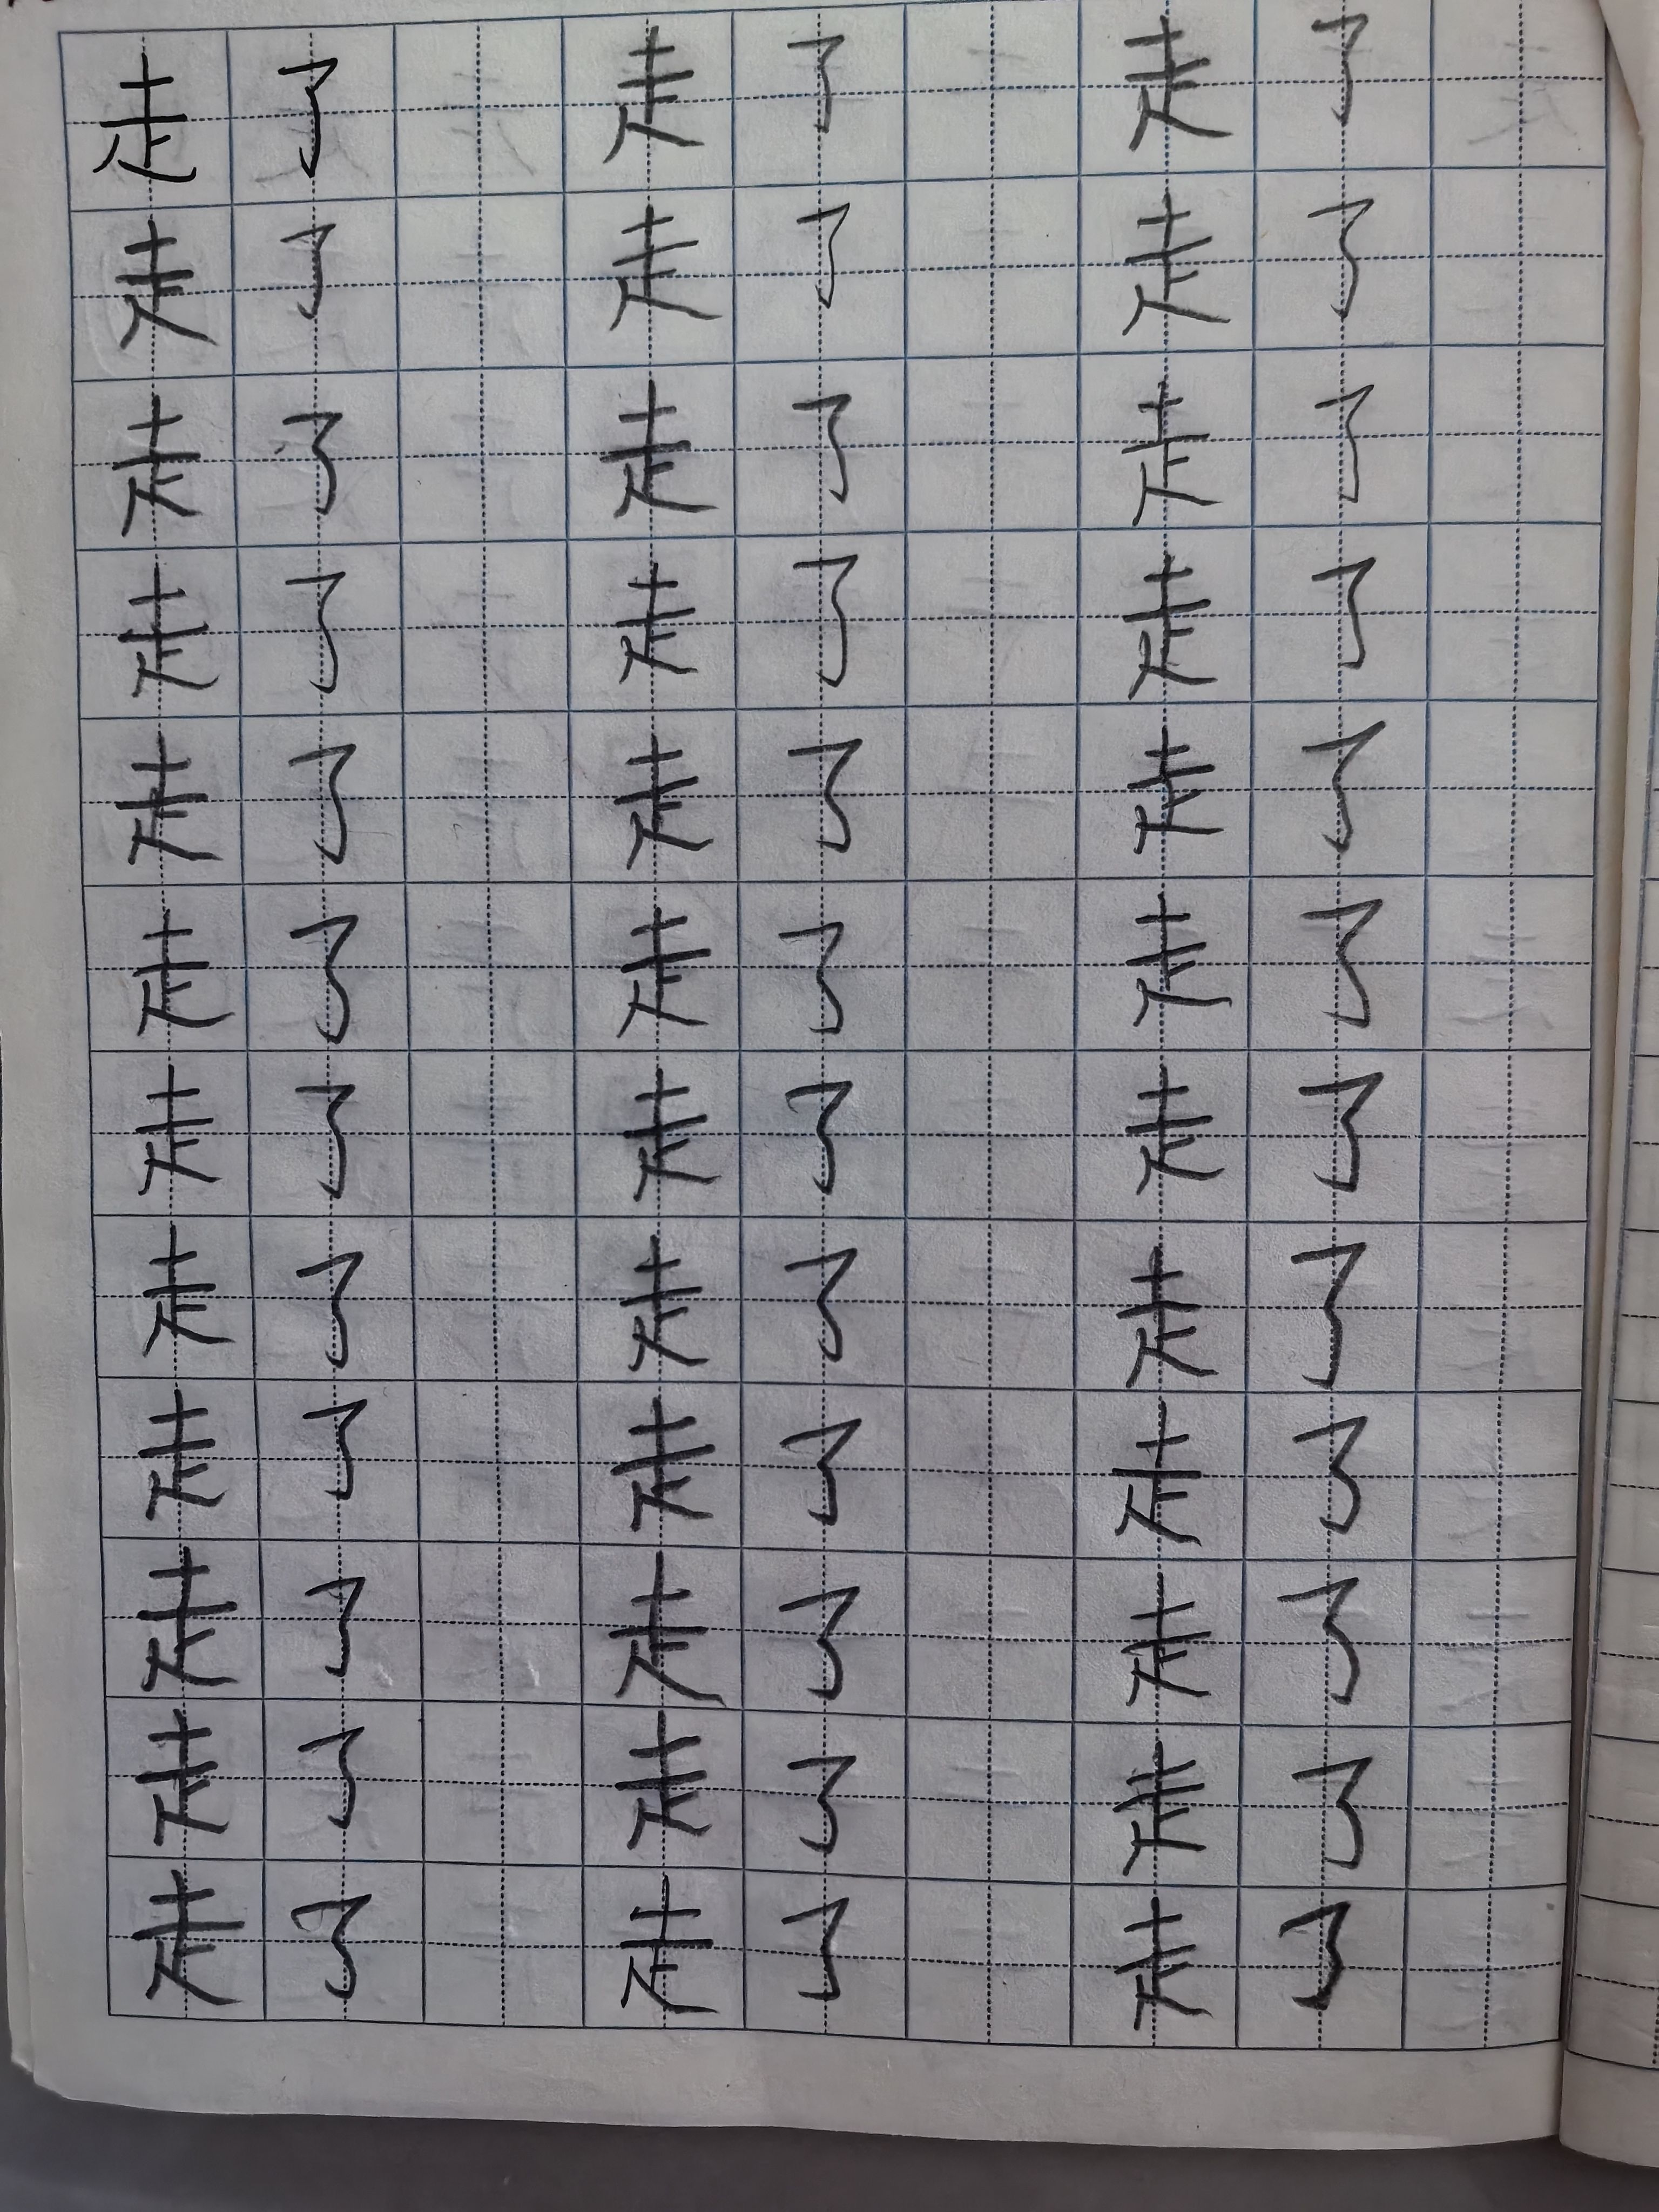 走了 走了 走了
走了 走了 走了
走了 走了 走了
走了 走了 走了
走了 走了 走了
走了 走了 走了
走了 走了 走了
走了 走了 走了
走了 走了 走了
走了 走了 走了
走了 走了 走了
走了 走了 走了